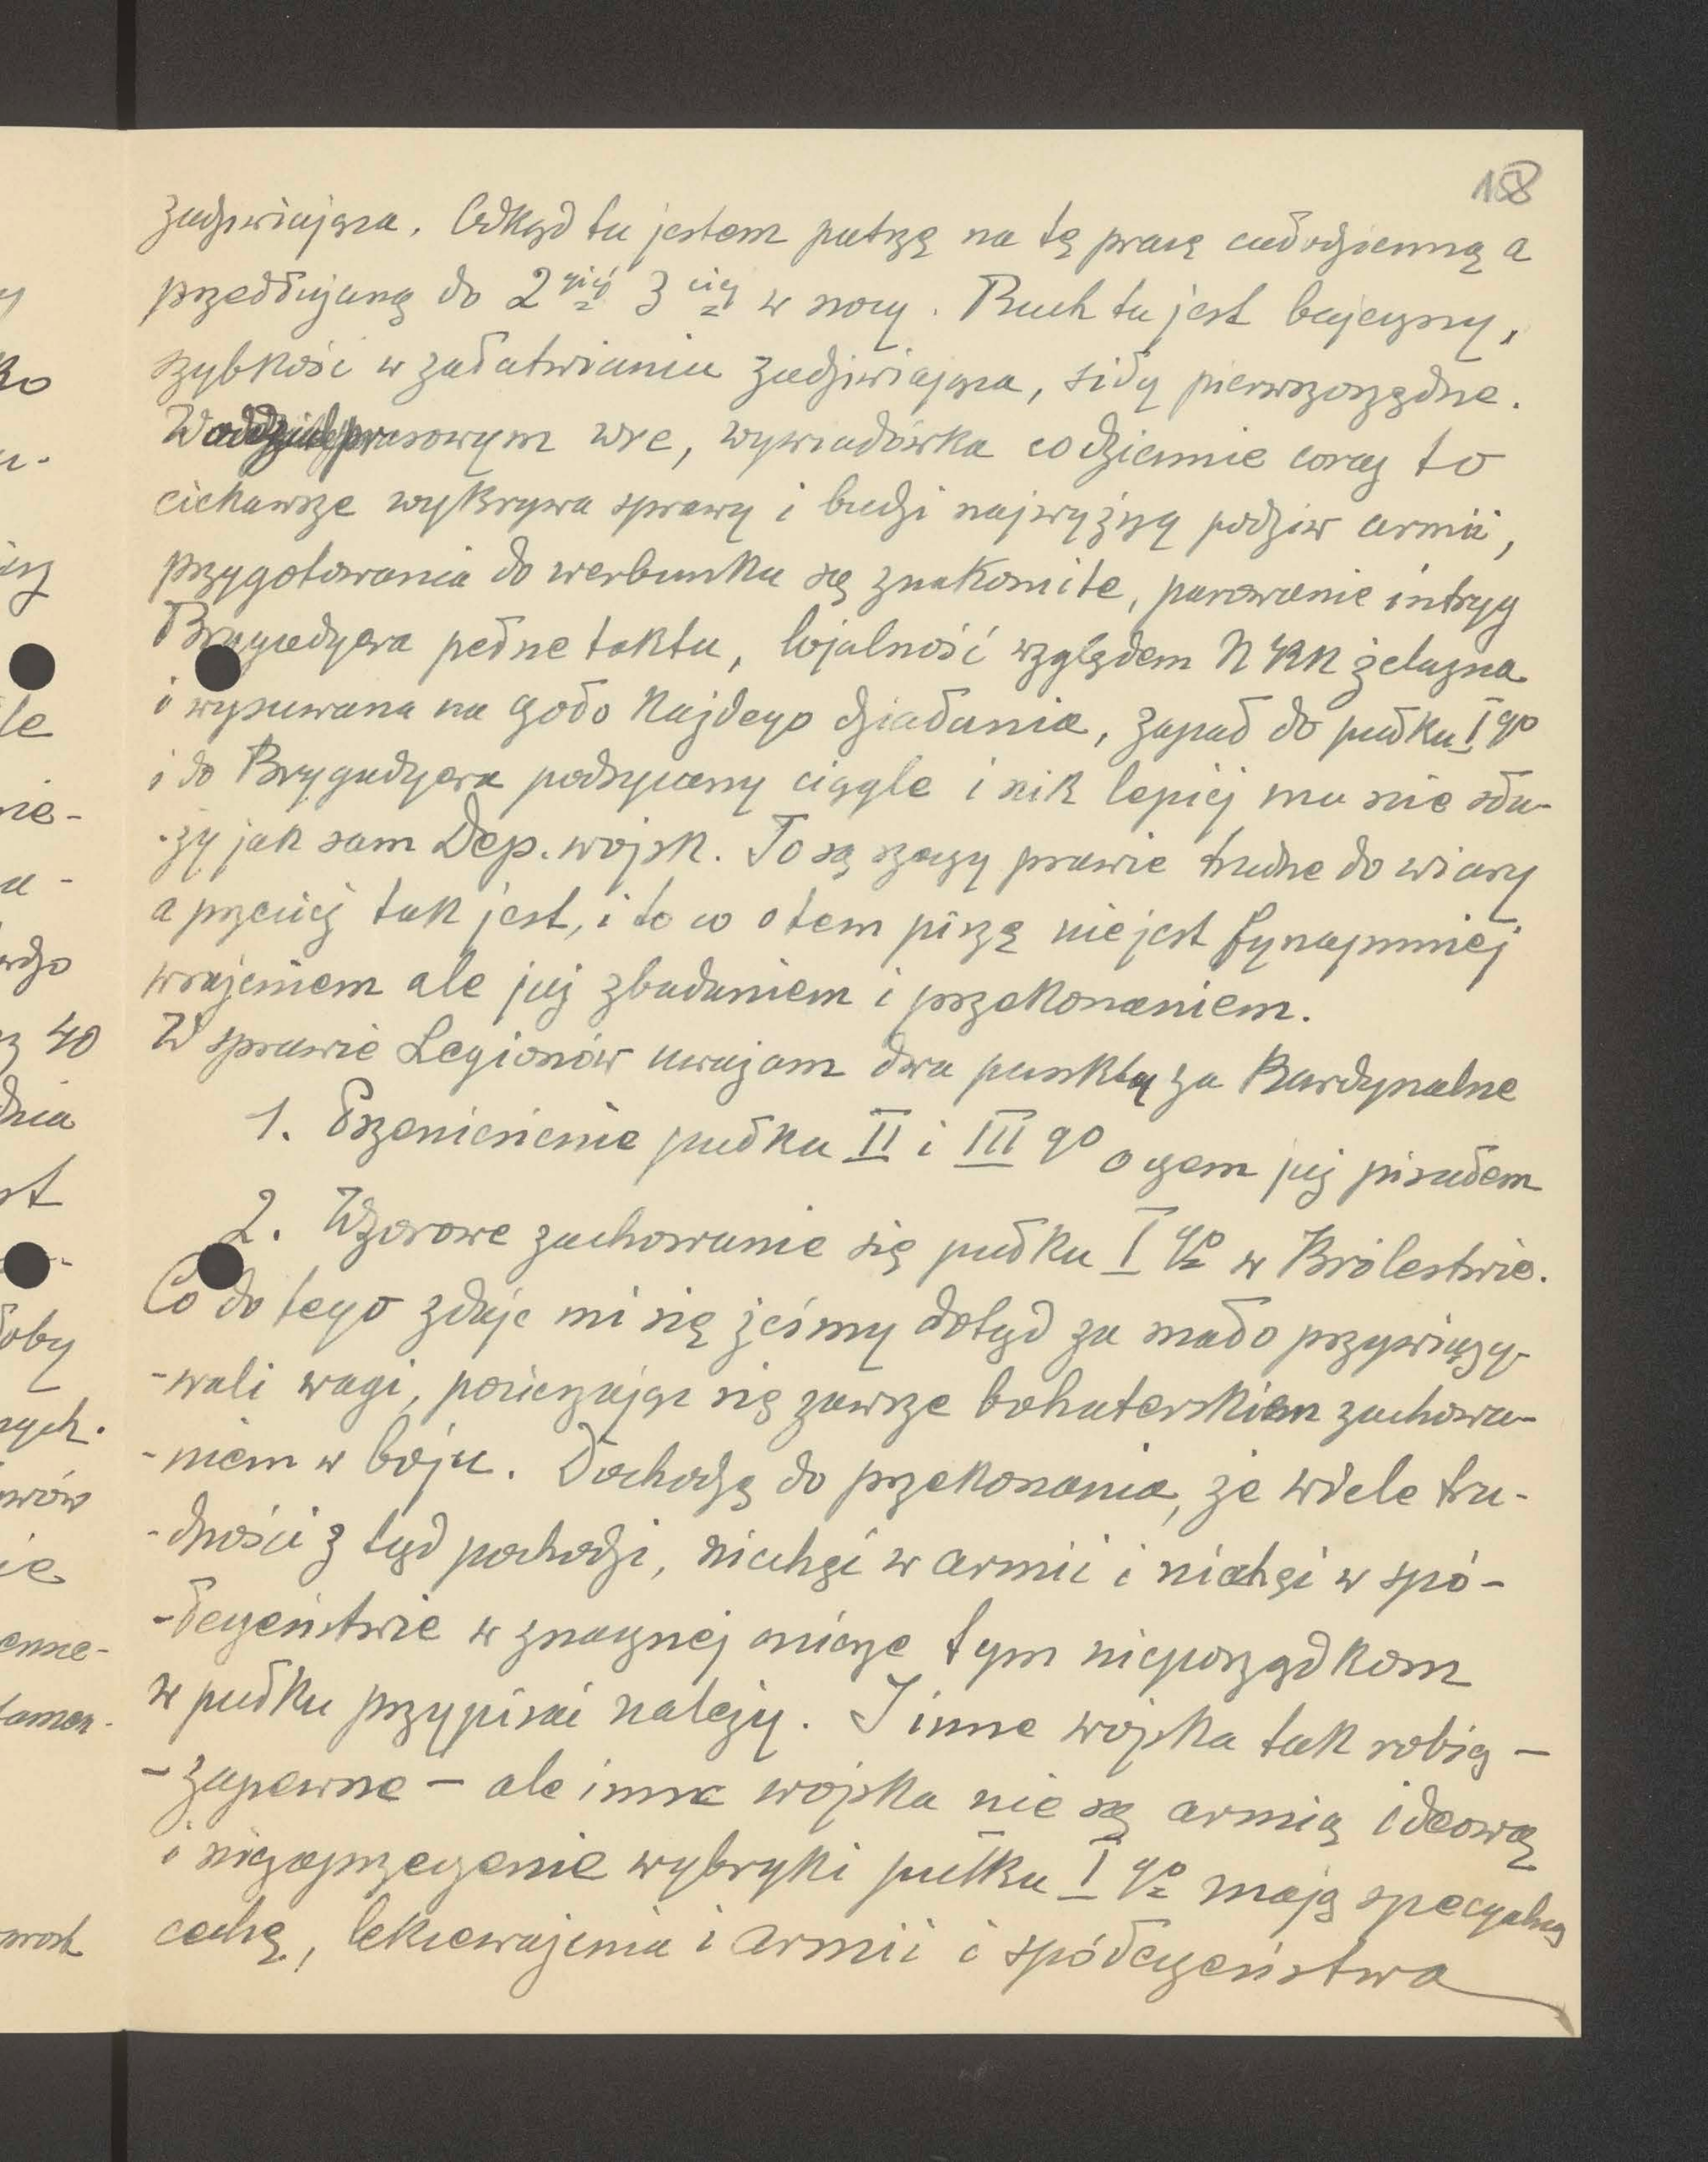 158
zadziwiająca. Odkąd tu jestem patrzę na tę pracę całodzienną a
przedłużaną do 2giej 3ciej w nocy. Ruch tu jest bajeczny,
szybkość w załatwianiu zadziwiająca, siły pierwszorzędne.
W oddziale prasowym wre, wywiadówka codziennie coraz to
ciekawsze wykrywa sprawy i budzi najwyższy podziw armii,
przygotowania do werbunku są znakomite, parowanie intryg
Brygadyera pełne taktu, lojalność względem NKN żelazna
i wysuwana na czoło każdego działania, zapał do pułku Igo
i do Brygadyera podsycany ciągle i nik lepiej mu nie słu-
-ży jak sam Dep. wojsk. To są rzeczy prawie trudne do wiary
a przecież tak jest, i to co o tem piszę nie jest bynajmniej
wrażeniem ale już zbadaniem i przekonaniem.
W sprawie Legionów uważam dwa punkta za kardynalne
1. Przeniesienie pułku II i III go o czem już pisałem
2. Wzorowe zachowanie się pułku I go w Królestwie.
Co do tego zdaje mi się żeśmy dotąd za mało przywiązy-
-wali wagi, pocieszając się zawsze bohaterskiem zachowa-
-niem w boju. Dochodzę do przekonania, że wiele tru-
-dności z tąd pochodzi, niechęć w armii i niechęć w spó-
-łeczeństwie w znacznej mierze tym nieporządkom
w pułku przypisać należy. I inne wojska tak robią -
- zapewne - ale inne wojska nie są armią ideową
i niezaprzeczenie wybryki pułku I go mają specyalną
cechę, lekceważenia i armii i społeczeństwa
40